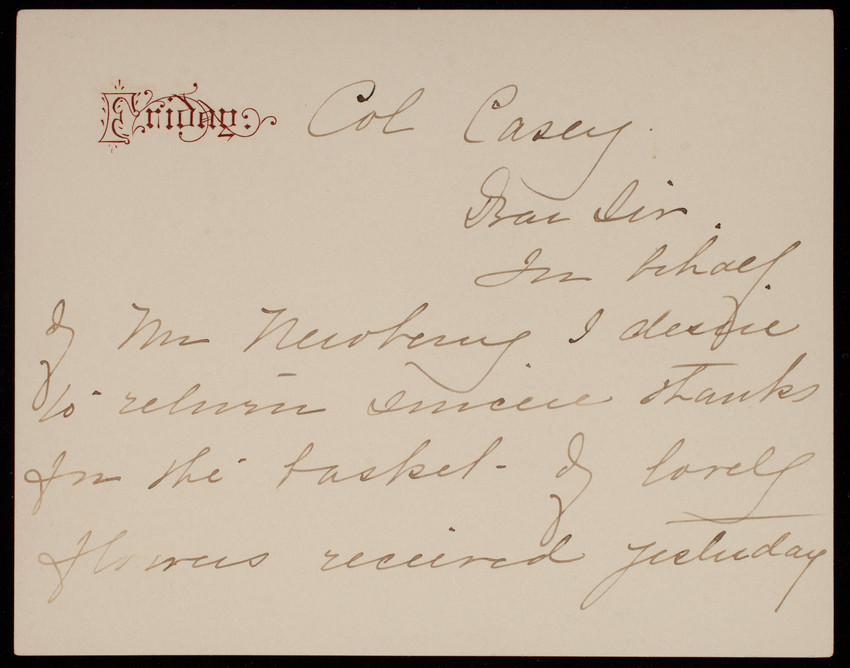 Friday: Col Casey.
Dear Sir.
In behalf
of Mr Newberry I desire
to return sincere thanks
for the basket - of lovely
flowers received yesterday